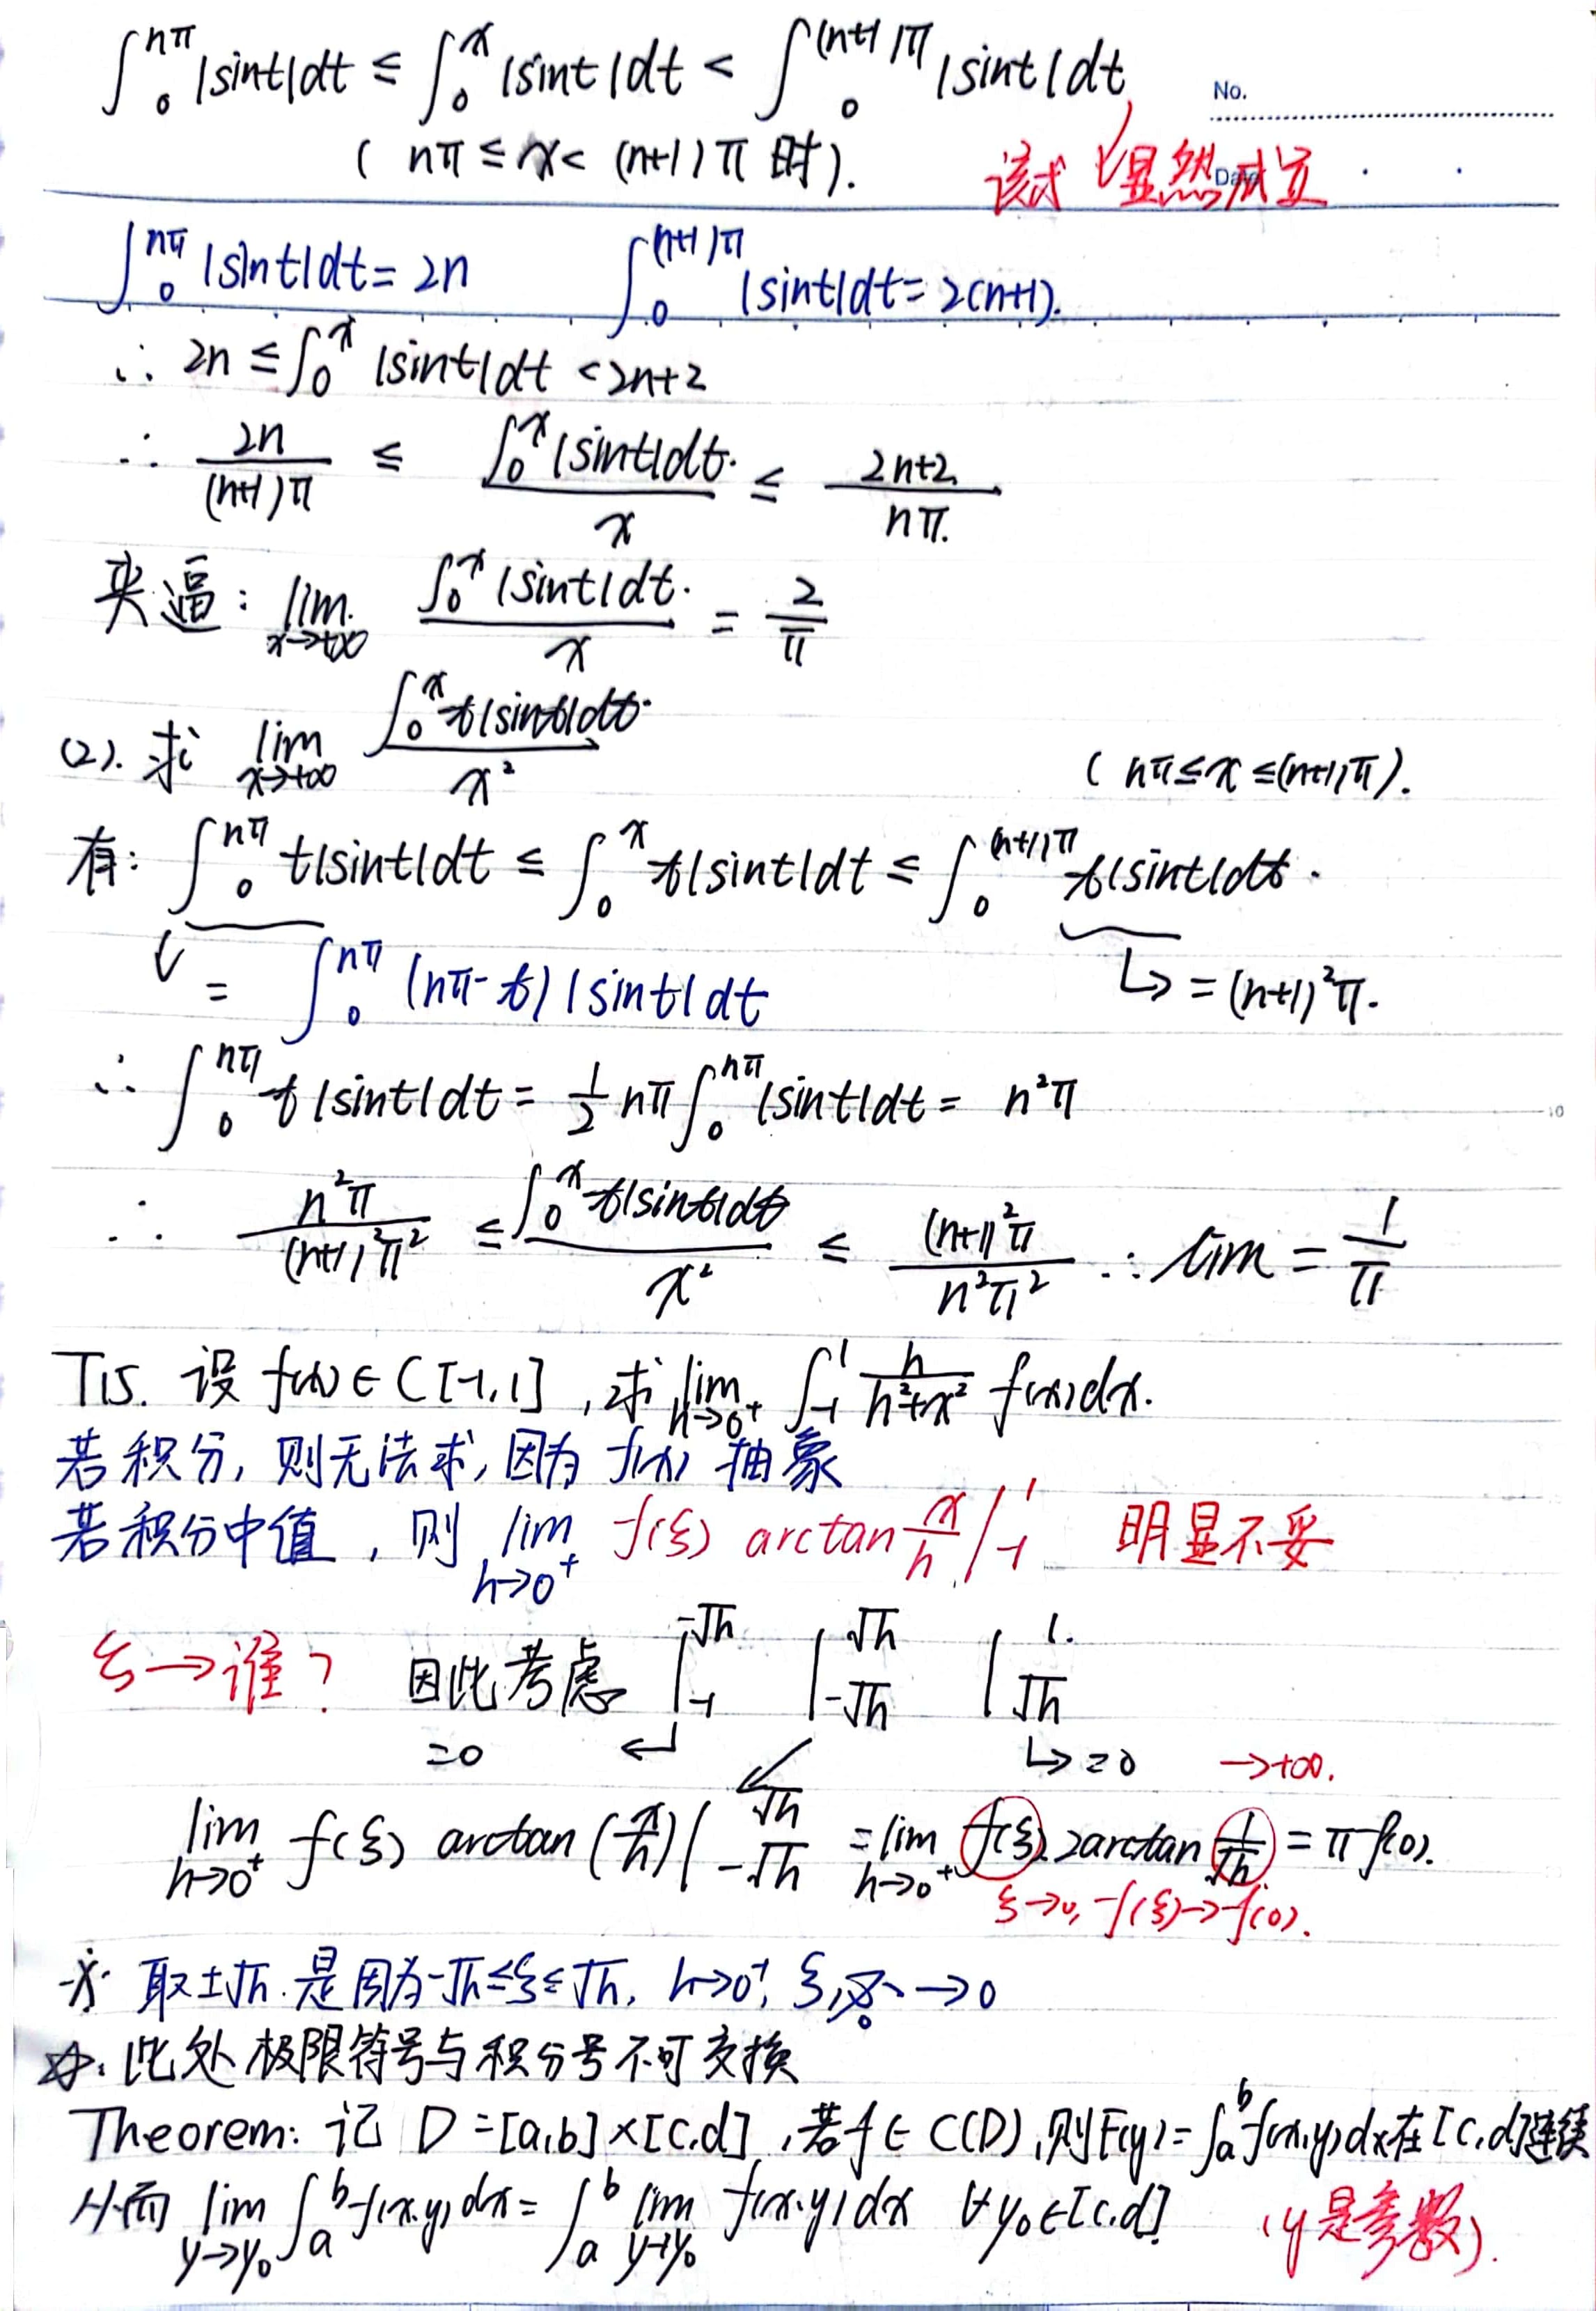 ∫₀^{nπ} |sint|dt ≤ ∫₀^{x} |sint|dt < ∫₀^{(n+1)π} |sint|dt
No.
( nπ ≤ x < (n+1)π 时).
该式显然成立
Date
∫₀^{nπ} |sint|dt = 2n   ∫₀^{(n+1)π} |sint|dt = 2(n+1).
∴ 2n ≤ ∫₀^{x} |sint|dt < 2n+2
∴ 2n/((n+1)π) ≤ (∫₀^{x} |sint|dt)/x ≤ (2n+2)/(nπ)
夹逼: lim_{x→+∞} (∫₀^{x} |sint|dt)/x = 2/π
(2). 求 lim_{x→+∞} (∫₀^{x} t|sint|dt)/x²
( nπ ≤ x ≤ (n+1)π ).
有: ∫₀^{nπ} t|sint|dt ≤ ∫₀^{x} t|sint|dt ≤ ∫₀^{(n+1)π} t|sint|dt.
= ∫₀^{nπ} (nπ-t)|sint|dt   ↳ = (n+1)²π.
∴ ∫₀^{nπ} t|sint|dt = 1/2 nπ ∫₀^{nπ} |sint|dt = n²π
∴ n²π/((n+1)²π²) ≤ (∫₀^{x} t|sint|dt)/x² ≤ (n+1)²π/(n²π²) ∴ lim = 1/π
T15. 设 f(x)∈C[-1,1], 求 lim_{h→0⁺} ∫₋₁^{1} h/(h²+x²) f(x)dx.
若积分, 则无法求, 因为 f(x) 抽象
若积分中值, 则 lim_{h→0⁺} f(ξ) arctan x/h |₋₁^{1} 明显不妥
ξ→谁? 因此考虑 ∫₋₁^{-√h} ∫_{-√h}^{√h} ∫_{√h}^{1}
=0 ↵ ↙ ↳ =0 →+∞.
lim_{h→0⁺} f(ξ) arctan(x/h)|_{-√h}^{√h} = lim_{h→0⁺} f(ξ) 2arctan 1/√h = πf(0).
ξ→0, f(ξ)→f(0).
※ 取±√h 是因为 -√h≤ξ≤√h, h→0⁺, ξ必→0
☆: 此处极限符号与积分号不可交换
Theorem: 记 D=[a,b]×[c,d], 若f∈C(D), 则F(y)=∫ₐ^{b} f(x,y)dx在[c,d]连续
从而 lim_{y→y₀} ∫ₐ^{b} f(x,y)dx = ∫ₐ^{b} lim_{y→y₀} f(x,y)dx ∀y₀∈[c,d] (y是参数).